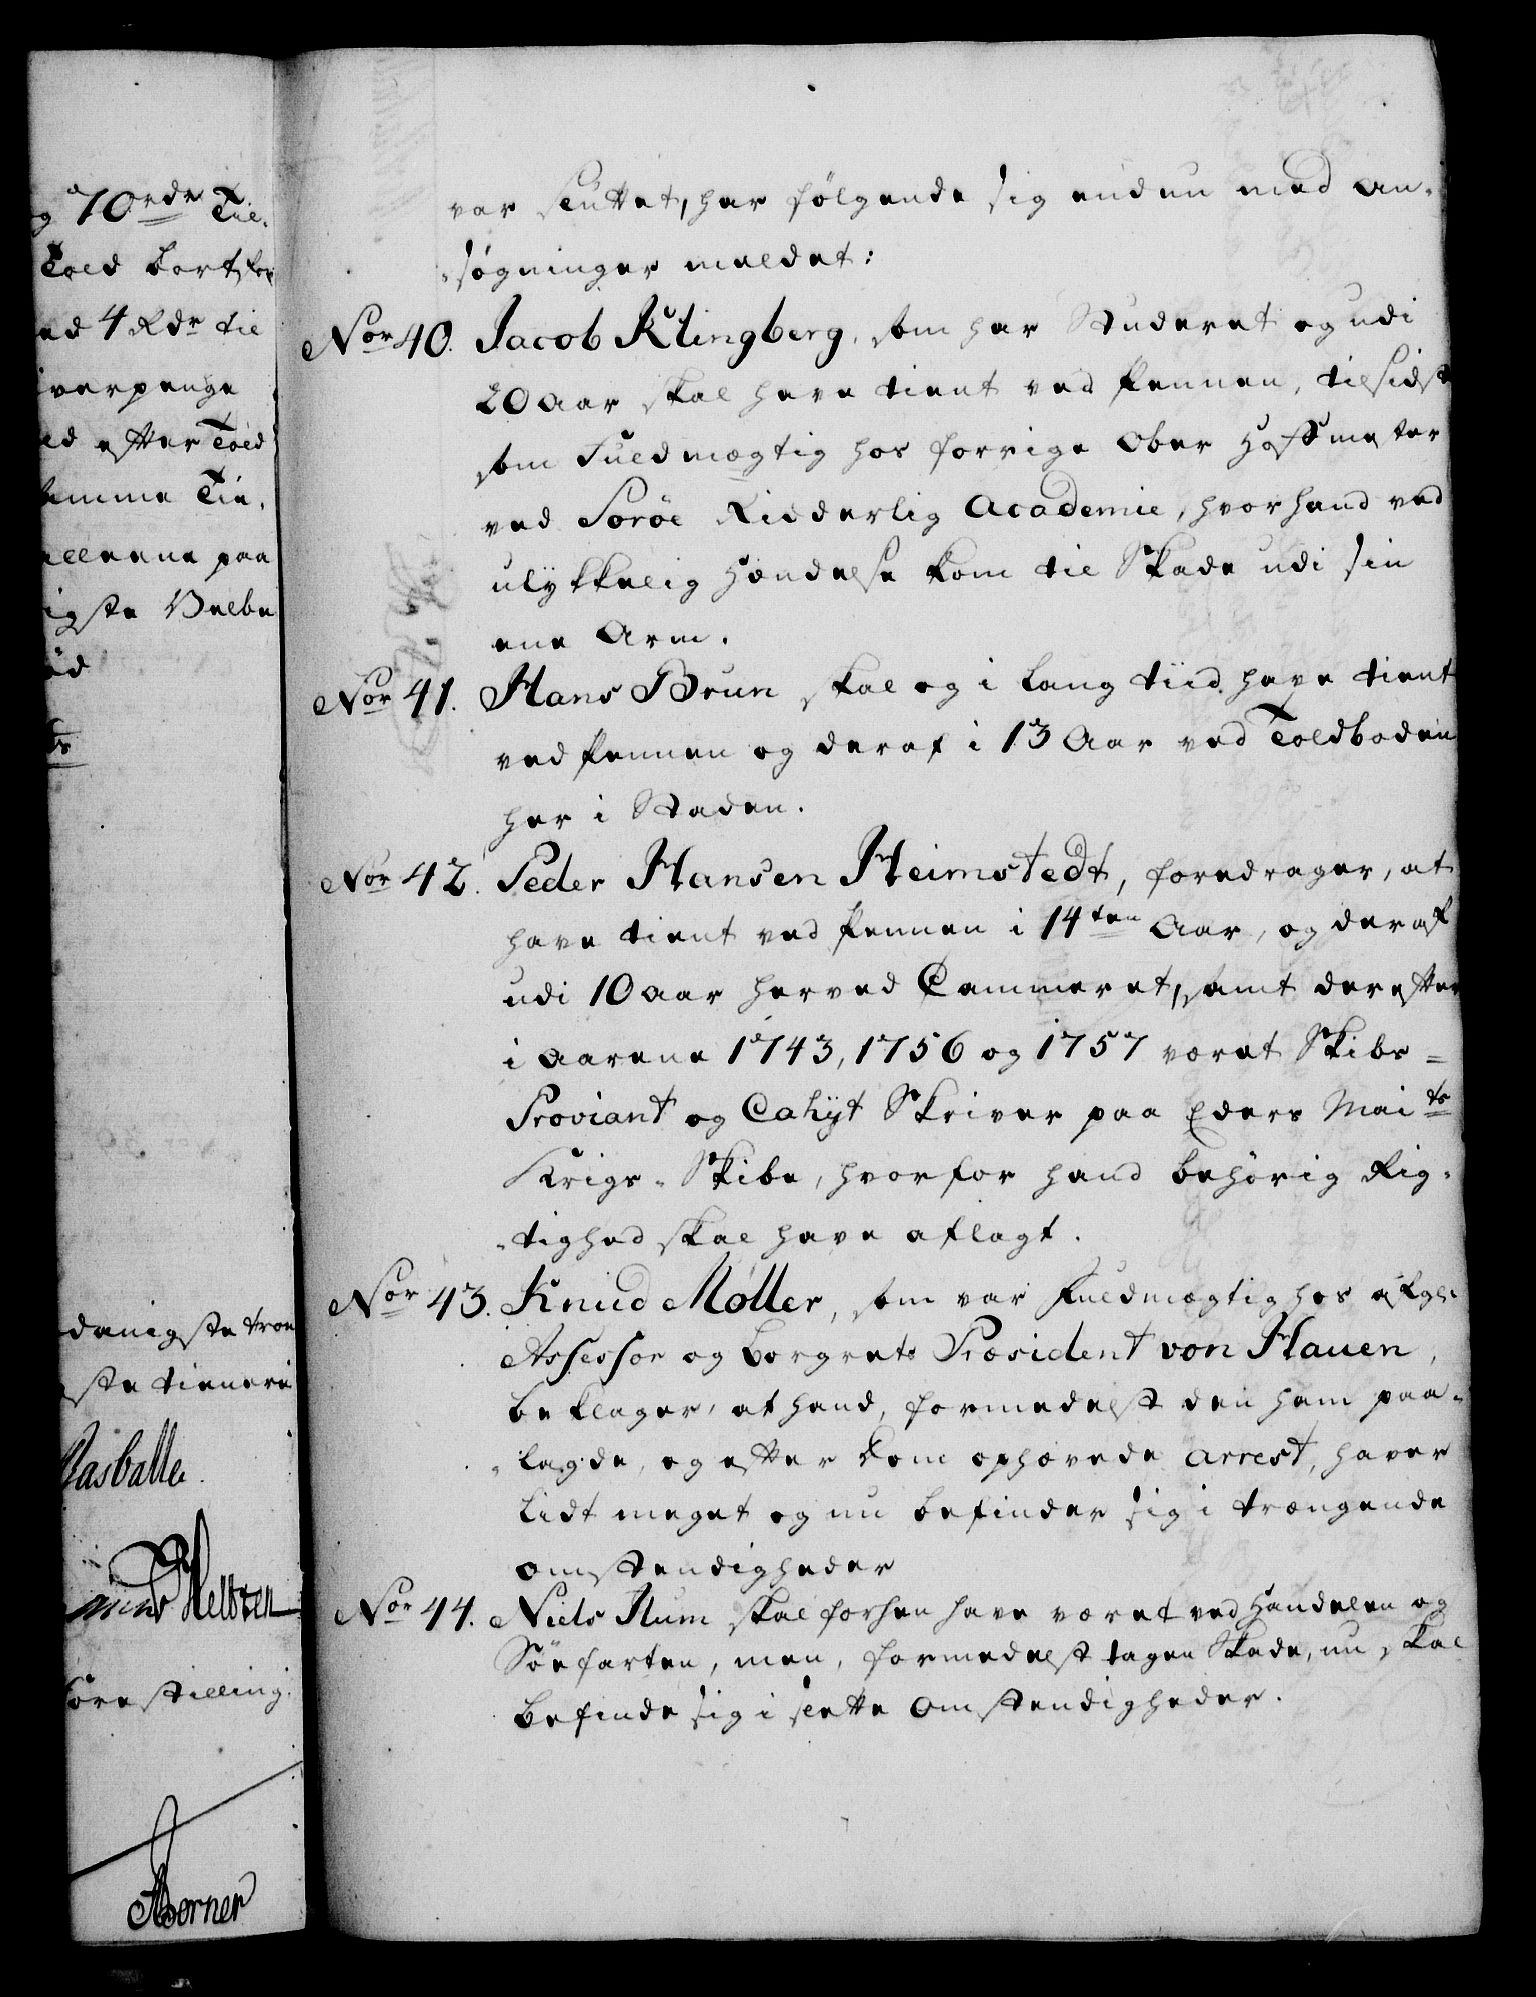 g 70 rdr Til-
Told bort
ed 4 Rdr til
verpenge
ed efter Told
emme Tie-
allerene paa
igste Velbe
ød
danigste troe
ste tienere
Rasballe
Heltzen
forestilling.
Borner
var sluttet, har følgende sig endnu med an-
søgninger meldet:
Nor 40. Jacob Klingberg, som har Studeret og udi
20 Aar skal have tient ved Pennen, tilsidst
som Fuldmægtig hos forrige Ober Hoffmester
ved Sorøe Ridderlig Academie, hvor hand ved
ulykkelig Hændelse kom til Skade udi sin
ene Arm.
Nor 41. Hans Brun skal og i lang tiid have tient
ved Pennen og deraf i 13 Aar ved Toldboden
her i Staden.
Nor 42. Peder Hansen Heimstedt, foredrager, at
have tient ved Pennen i 14ten Aar, og deraf
udi 10 Aar herved Cammeret, samt derefter
i Aarene 1743, 1756 og 1757 været Skibs-
Proviant og Cahyt Skriver paa Eders Maits
Krigs-Skibe, hvorfor hand behørig Rig-
tighed skal have aflagt.
Nor 43. Knud Møller, som var Fuldmægtig hos afgl:
Assessor og Borgrets Præsident von Hauen,
beklager, at hand, formedelst den ham paa-
lagde, og efter Dom ophævede Arrest, haver
lidt meget og nu befinder sig i trængende
omstændigheder
Nor 44. Niels Rum skal forhen have været ved Handelen og
Søefarten, men, formedelst tagen Skade, nu skal
befinde sig i slette Omstændigheder.